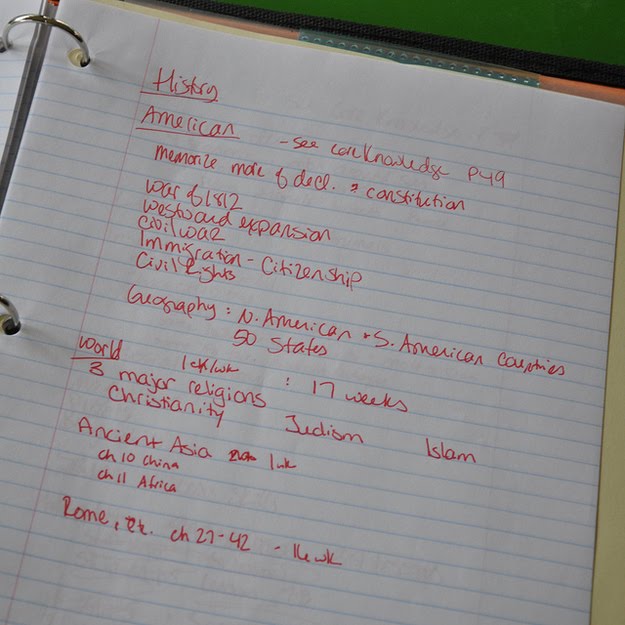 History
American - see Core Knowledge p49
memorize more of decl. & constitution
War of 1812
Westward expansion
Civil War
Immigration - Citizenship
Civil Rights
Geography: N. American & S. American Countries
50 States
World 1 ch/wk : 17 weeks
3 major religions
Christianity Judism Islam
Ancient Asia 1 wk
ch 10 China
ch 11 Africa
Rome, etc. ch 27-42 - 16 wk